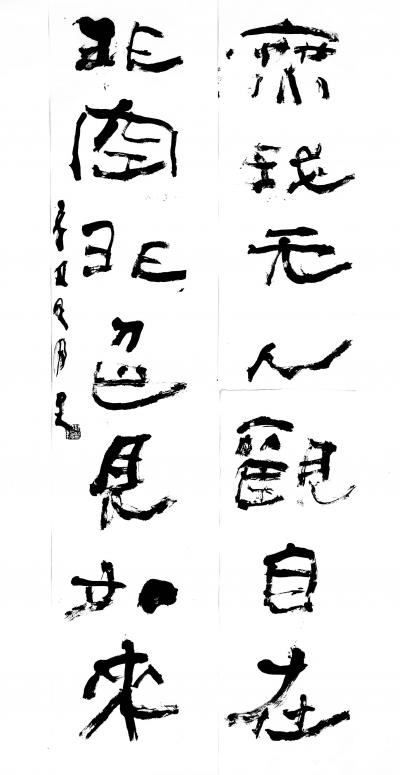 無我无人觀自在
非空非色見如來